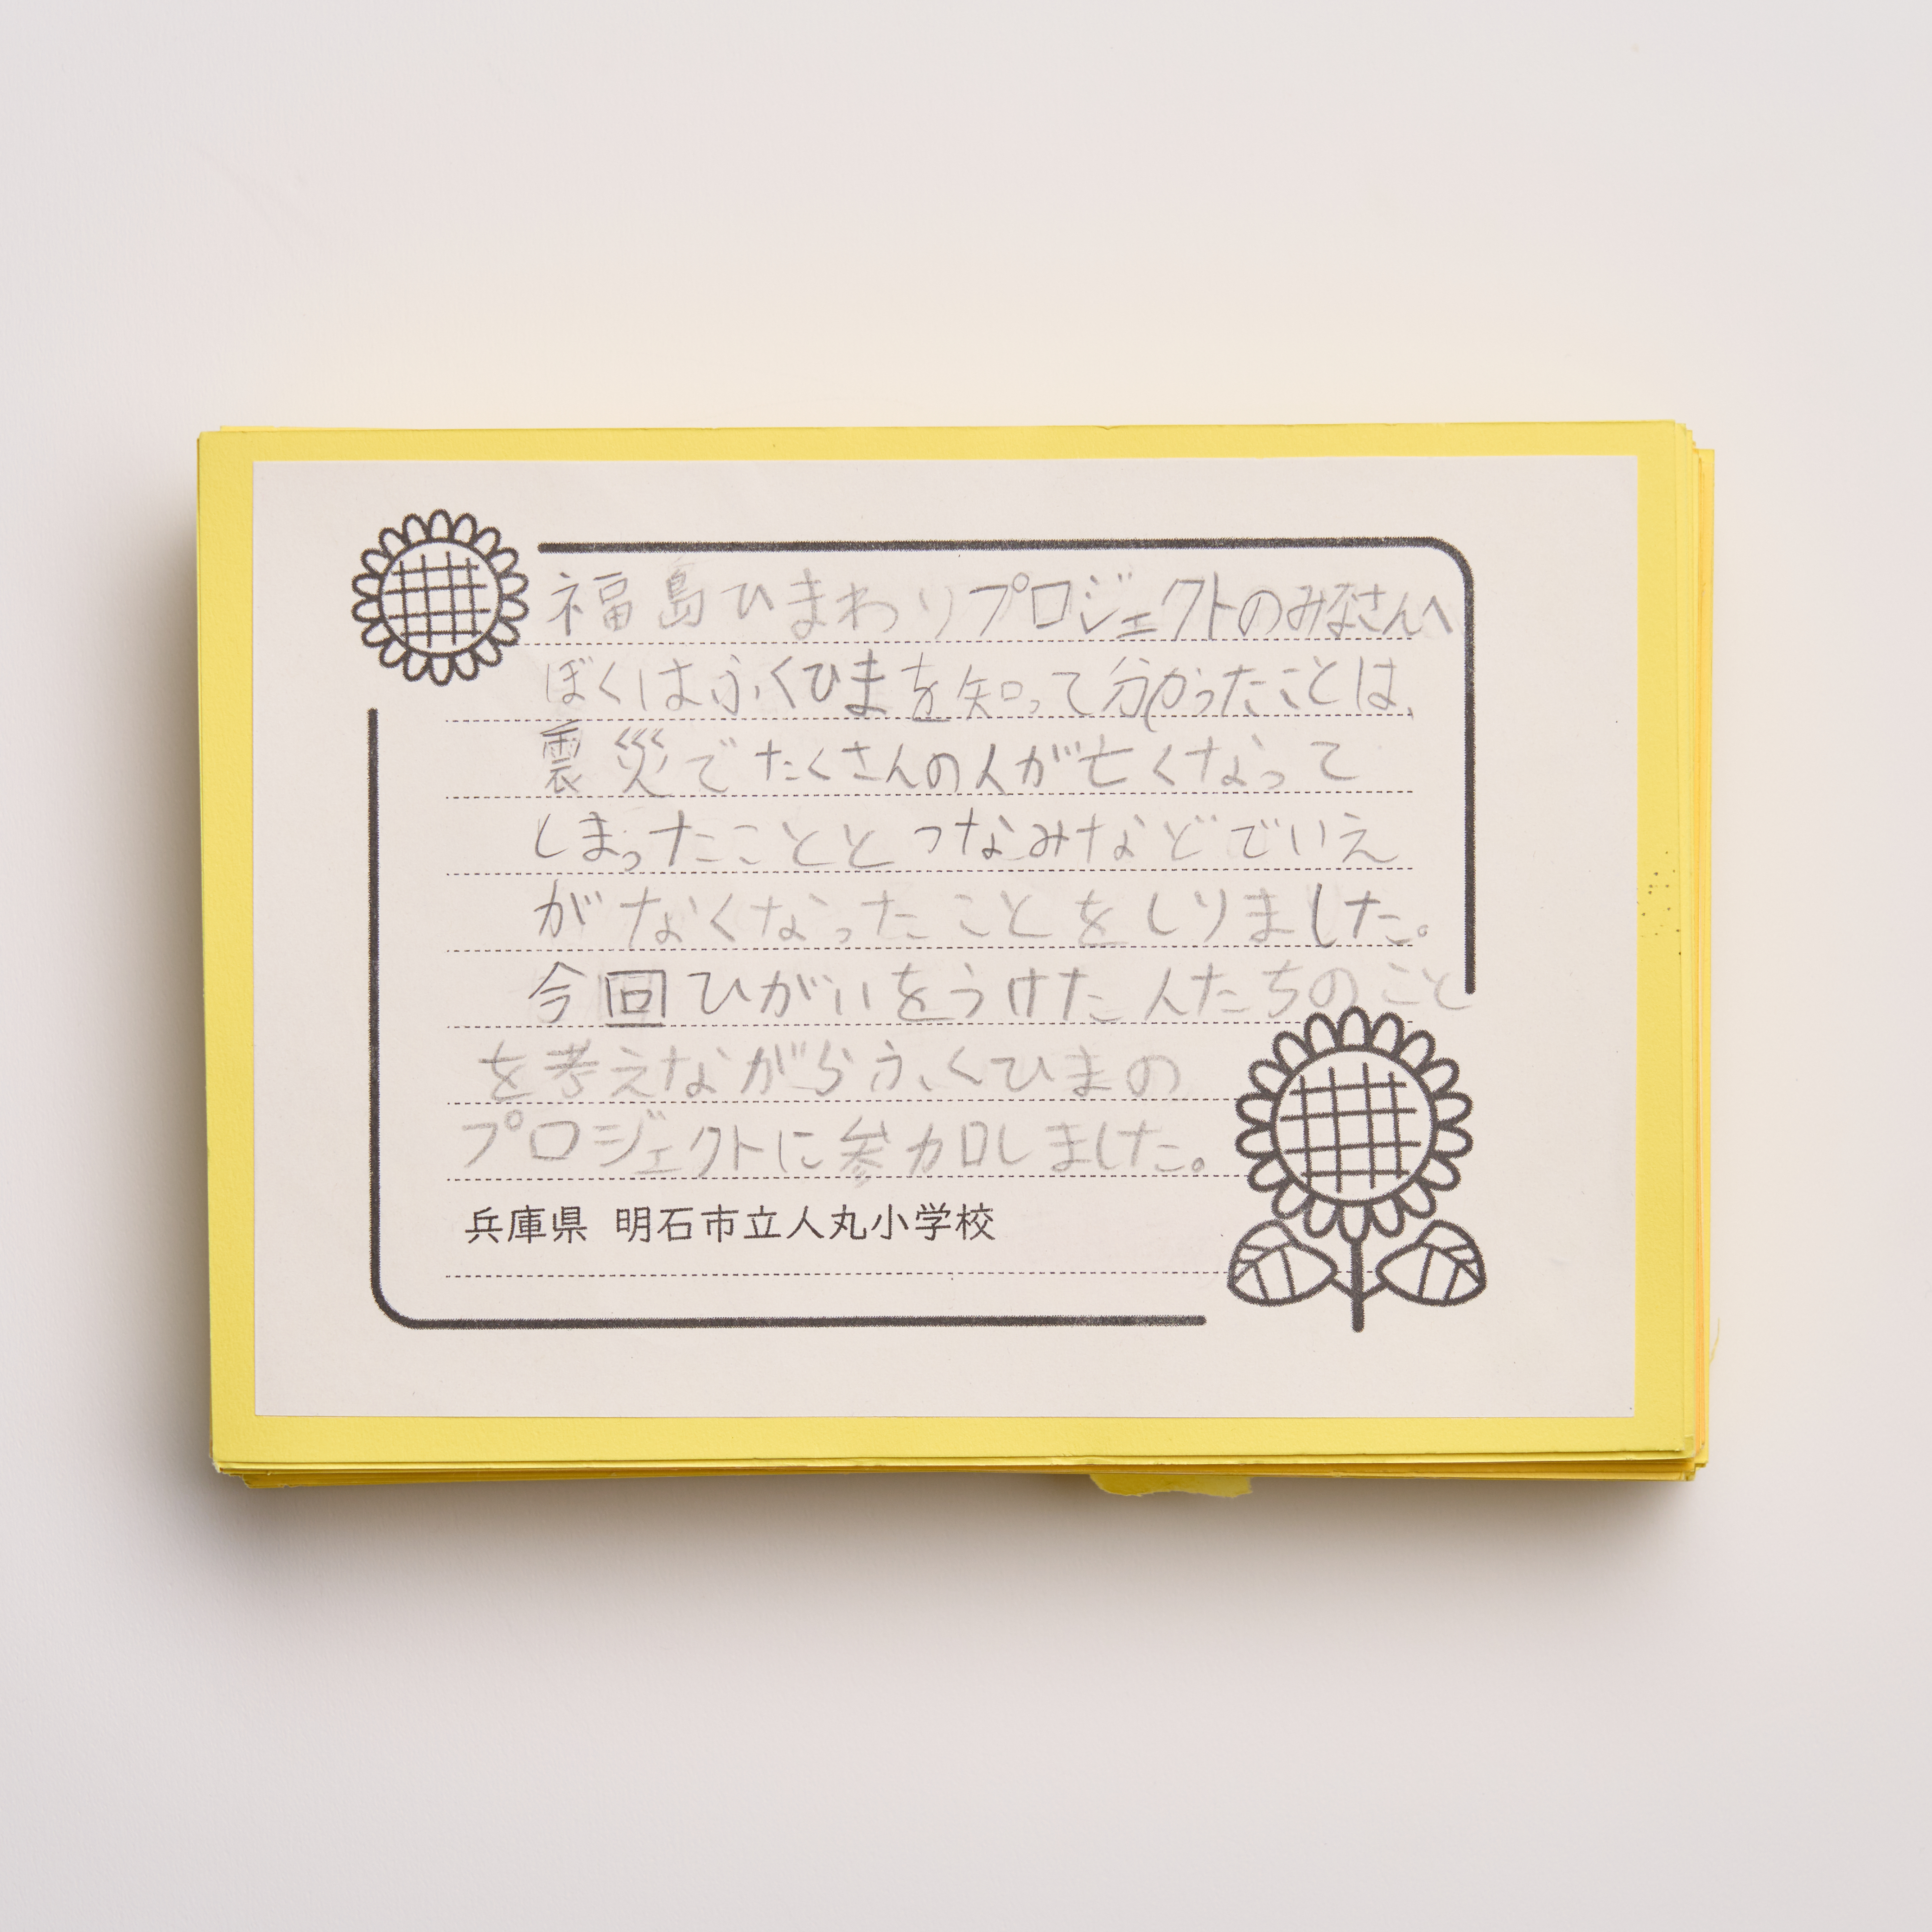 福島ひまわりプロジェクトのみなさんへ
ぼくはふくひまを知って分かったことは、
震災でたくさんの人が亡くなって
しまったこととつなみなどでいえ
がなくなったことをしりました。
今回ひがいをうけた人たちのこと
を考えながらふくひまの
プロジェクトに参加しました。
兵庫県 明石市立人丸小学校